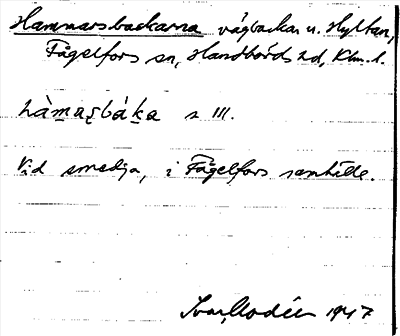 Hammarsbackarna vägbackar u. Hyltan,
Fågelfors sn, Handbörds hd, Klm. l.
hàmaṣbáka s III.
Vid smedja, i Fågelfors samhälle.
Ivar Modéer 1947